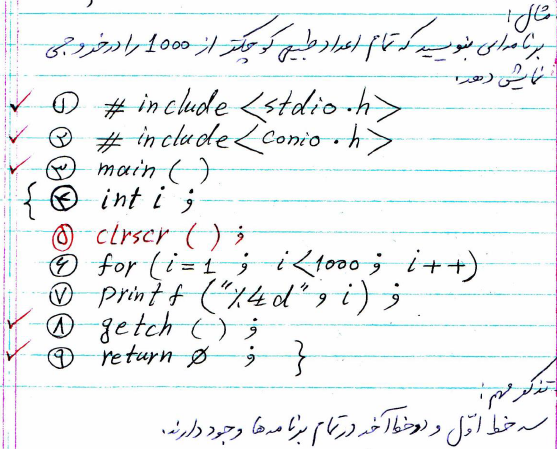 مثال:
برنامه‌ای بنویسید که تمام اعداد طبیعی کوچکتر از 1000 را در خروجی
نمایش دهد.
✓ ① # include <stdio.h>
✓ ② # include <conio.h>
✓ ③ main ( )
{ ④ int i ;
⑤ clrscr ( ) ;
⑥ for (i=1 ; i<1000 ; i++)
⑦ printf ("%4d" , i) ;
✓ ⑧ getch ( ) ;
✓ ⑨ return 0 ; }
تذکر مهم:
سه خط اوّل و دو خط آخر در تمام برنامه‌ها وجود دارند.